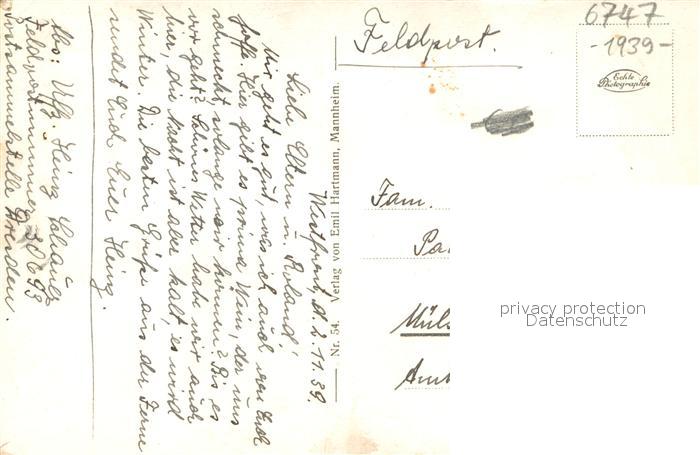 6747
-1939-
Feldpost.
Echte
Photographie
Westfront, d. 2.11.39.
Liebe Eltern u. Roland!
Mir geht es gut, was ich auch von Euch
hoffe. Hier gibt es prima Wein, der uns
schmeckt, solange wir können? Bis es
wir geht? Schönes Wetter habe wir auch
hier, die Nacht ist aber kalt, es wird
Winter. Die besten Grüße aus der Ferne
sendet Euch Euer Heinz.
Abs: Uffz. Heinz
Feldpostnummer
Postsammelstelle Dresden.
Nr. 54. Verlag von Emil Hartmann, Mannheim.
Fam.
Pa
Müls
Amt
privacy protection
Datenschutz